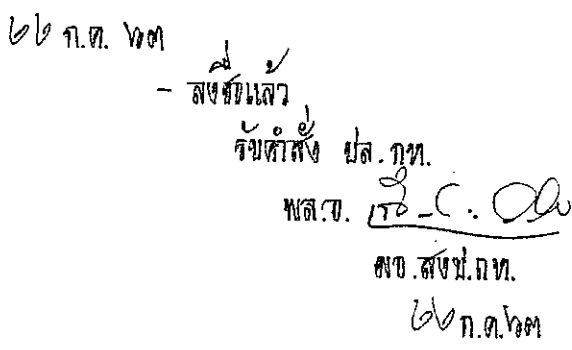 ๒๒ ก.ค. ๖๓
- ลงชื่อแล้ว
รับคำสั่ง ปล.กห.
พล.ต.
ผอ.สงป.กห.
๒๒ ก.ค. ๖๓